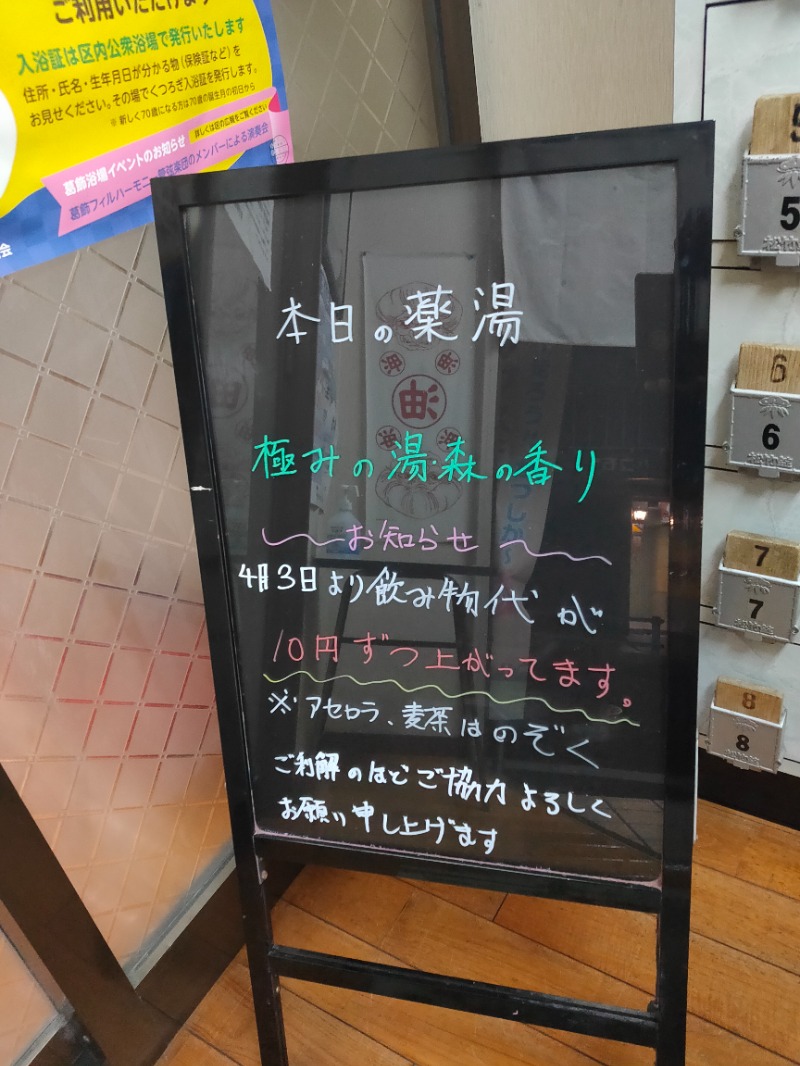 ご利用いただけます
入浴証は区内公衆浴場で発行いたします
住所・氏名・生年月日が分かる物（保険証など）を
お見せください。その場でくつろぎ入浴証を発行します。
※ 新しく70歳になる方は70歳の誕生月の初日から
葛飾浴場イベントのお知らせ 詳しくは区の広報をご覧ください
葛飾フィルハーモニー管弦楽団のメンバーによる演奏会
会
本日の薬湯
極みの湯・森の香り
お知らせ
4月3日より飲み物代が
10円ずつ上がってます。
※アセロラ、麦茶はのぞく
ご利解のほどご協力よろしく
お願い申し上げます
5
5
松竹錠
6
6
松竹錠
7
7
8
8